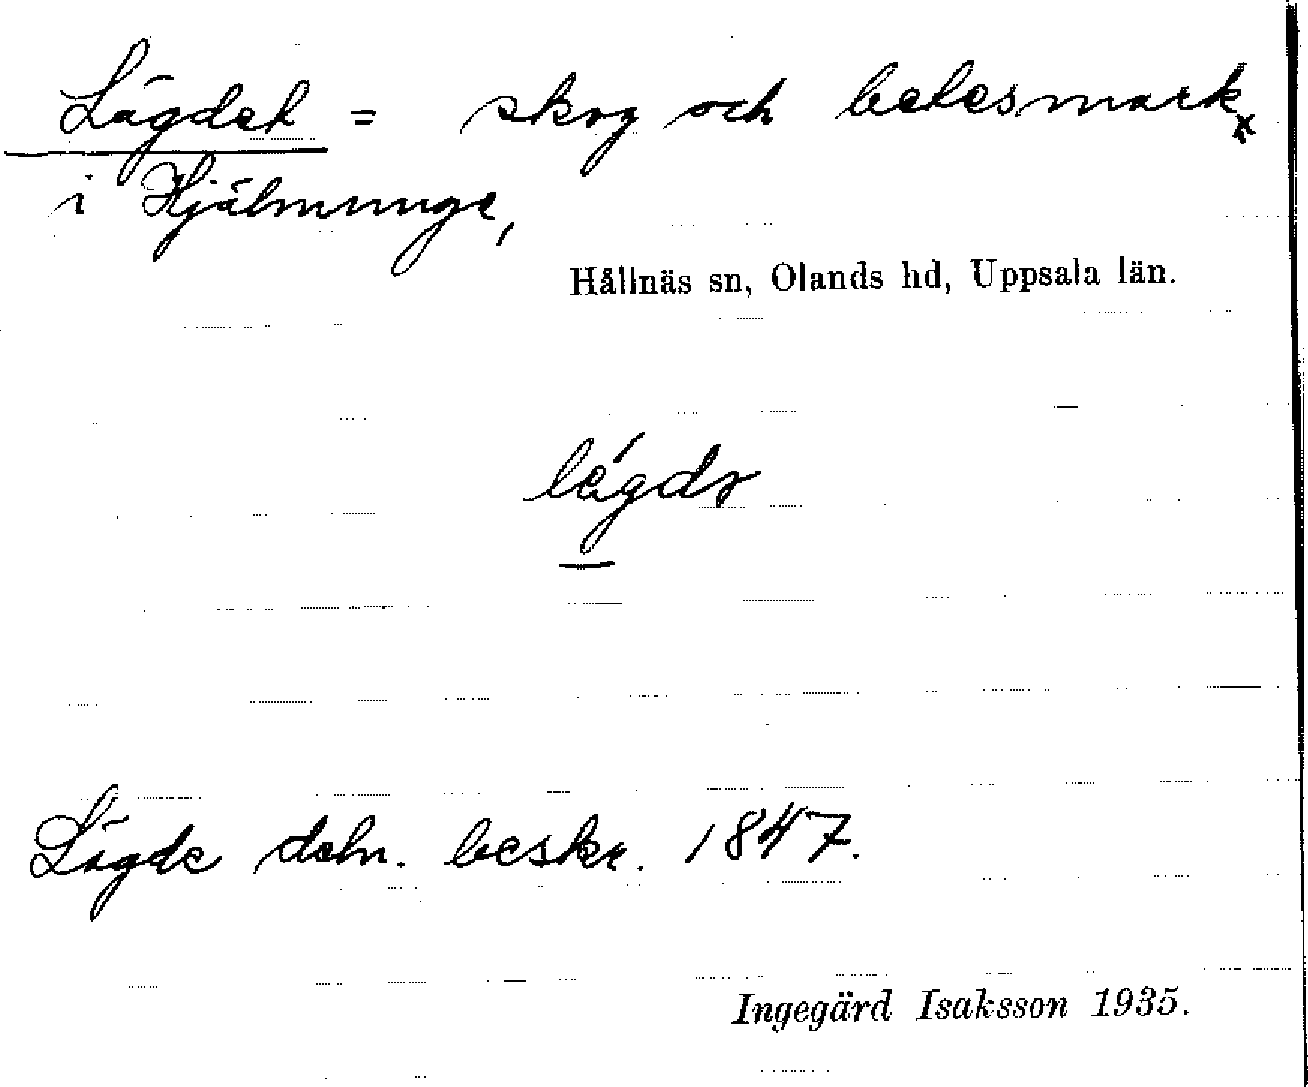 Lägdet = skog och betesmark x
i Hjälmunge,
Hållnäs sn, Olands hd, Uppsala län.
Lägde deln. beskr. 1847.
Ingegärd Isaksson 1935.